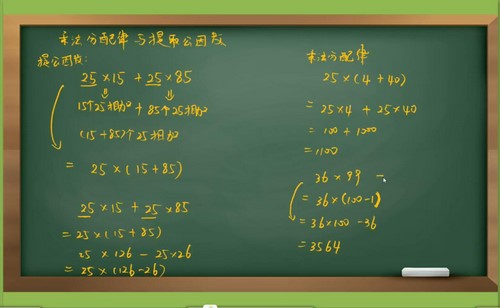 乘法分配律与提取公因数
提公因数:
25×15 + 25×85
15个25相加 + 85个25相加
(15+85)个25相加
= 25×(15+85)
25×15 + 25×85
= 25×(15+85)
25×126 - 25×26
= 25×(126-26)
乘法分配律
25×(4+40)
= 25×4 + 25×40
= 100 + 1000
= 1100
36×99
= 36×(100-1)
= 36×100 - 36
= 3564